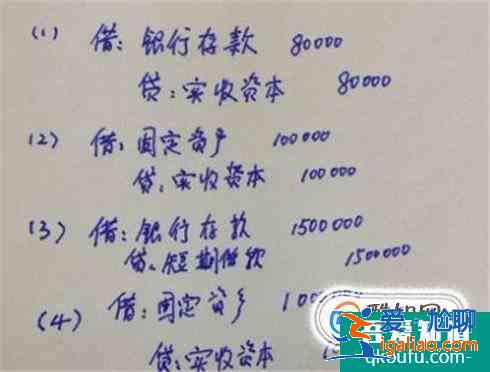 (1) 借：银行存款 80000
贷：实收资本 80000
(2) 借：固定资产 100000
贷：实收资本 100000
(3) 借：银行存款 1500000
贷：短期借款 1500000
(4) 借：固定资产
贷：实收资本
爱尬聊
ijiagaliao.com